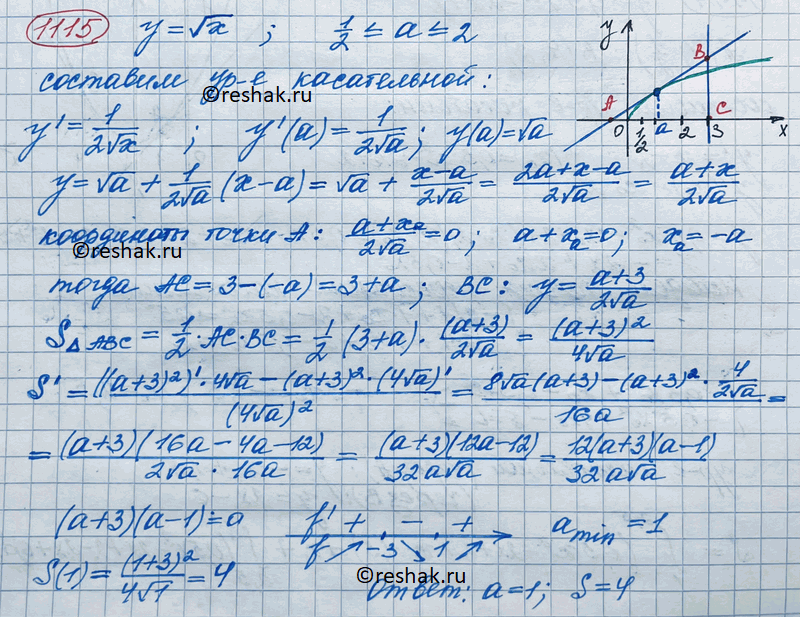 1115 y = √x ; 1/2 ≤ a ≤ 2
составим ур-е касательной:
©reshak.ru
y' = 1/(2√x) ; y'(a) = 1/(2√a) ; y(a) = √a
y A B C 0 1/2 a 2 3 x
y = √a + 1/(2√a) (x-a) = √a + (x-a)/(2√a) = (2a+x-a)/(2√a) = (a+x)/(2√a)
координаты точки A: (a+xₐ)/(2√a) = 0 ; a+xₐ=0 ; xₐ = -a
©reshak.ru
тогда AC = 3-(-a) = 3+a ; BC: y = (a+3)/(2√a)
S△ABC = 1/2 · AC · BC = 1/2 (3+a) · (a+3)/(2√a) = (a+3)²/(4√a)
S' = (((a+3)²)' · 4√a - (a+3)² · (4√a)')/(4√a)² = (8√a(a+3) - (a+3)² · 4/(2√a))/(16a) =
= (a+3)(16a-4a-12)/(2√a · 16a) = (a+3)(12a-12)/(32a√a) = 12(a+3)(a-1)/(32a√a)
(a+3)(a-1)=0 f' + - + a min = 1
f ↗ -3 ↘ 1 ↗
S(1) = (1+3)²/(4√1) = 4
©reshak.ru
Ответ: a=1; S=4